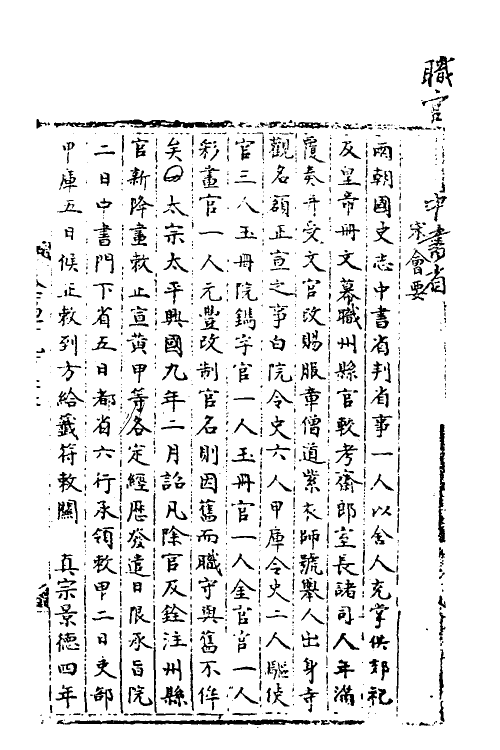 職官
中書省
宋會要
兩朝國史志中書省判省事一人以舍人充掌供郊祀
及皇帝冊文幕職州縣官較考齋郎室長諸司人年滿
覆奏并受文官改賜服章僧道紫衣師號舉人出身寺
觀名額正宣之事白院令史六人甲庫令史二人驅使
官三人玉冊院鐫字官一人玉冊官一人金官官一人
彩畫官一人元豐改制官名則因舊而職守與舊不侔
矣 太宗太平興國九年二月詔凡除官及銓注州縣
官新降畫敕止宣黃甲等各定經歷發遣日限承旨院
二日中書門下省五日都省六行承領敕甲二日吏部
甲庫五日候正敕列方給籤符敕關 真宗景德四年